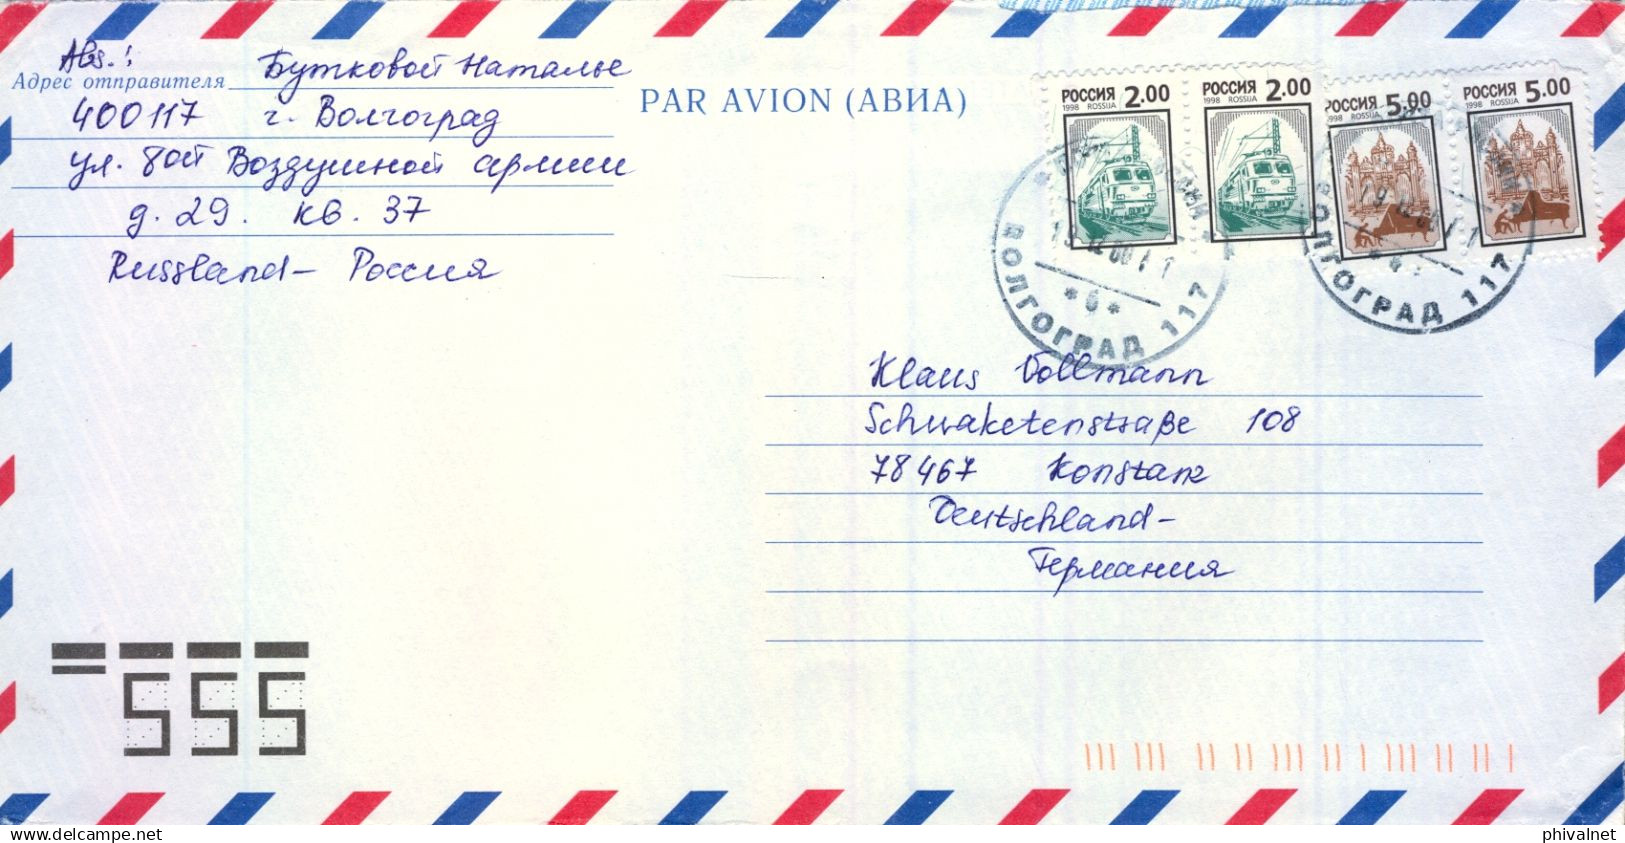 Abs.:
Адрес отправителя
Бутковой Наталье
400117 г. Волгоград
ул. 8ой Воздушной армии
д. 29. кв. 37
Russland - Россия
PAR AVION (АВИА)
РОССИЯ 2.00
1998 ROSSIJA
РОССИЯ 2.00
1998 ROSSIJA
РОССИЯ 5.00
1998 ROSSIJA
РОССИЯ 5.00
1998 ROSSIJA
ВОЛГОГРАД 117
*б*
ВОЛГОГРАД 117
Klaus Vollmann
Schwaketenstraße 108
78467 Konstanz
Deutschland -
Германия
555
phivalnet